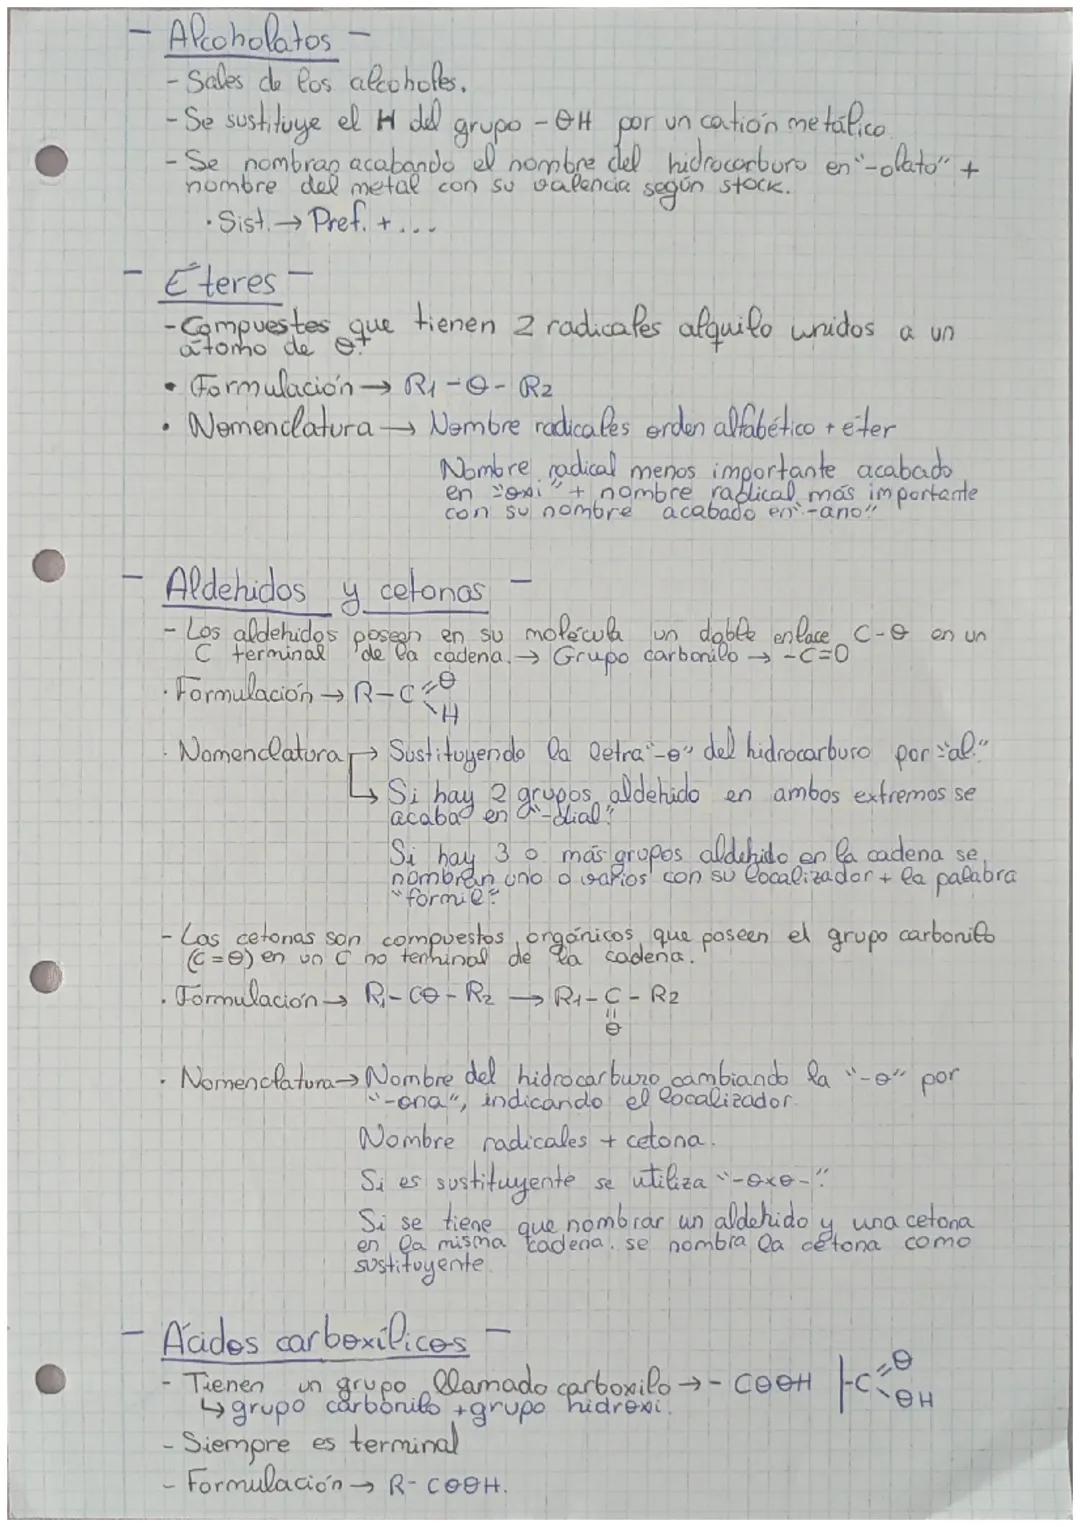 - Alcoholatos -
- Sales de los alcoholes.
- Se sustituye el H del grupo -OH por un catión metálico.
- Se nombran acabando el nombre del hidrocarburo en "-olato" +
nombre del metal con su valencia según stock.
· Sist. → Pref. + ...
- Éteres -
- Compuestos que tienen 2 radicales alquilo unidos a un
átomo de O.
• Formulación → R1 - O - R2
• Nomenclatura → Nombre radicales orden alfabético + éter
Nombre radical menos importante acabado
en "oxi" + nombre radical más importante
con su nombre acabado en "-ano".
- Aldehidos y cetonas -
- Los aldehidos poseen en su molécula un doble enlace C-O en un
C terminal de la cadena. → Grupo carbonilo → -C=O
· Formulación → R-C=O
H
· Nomenclatura → Sustituyendo la letra "-o" del hidrocarburo por "al."
↳ Si hay 2 grupos aldehido en ambos extremos se
acaba en "-dial".
Si hay 3 o más grupos aldehido en la cadena se
nombran uno o varios con su localizador + la palabra
"formil".
- Las cetonas son compuestos orgánicos que poseen el grupo carbonilo
(C=O) en un C no terminal de la cadena.
· Formulación → R1 - CO - R2 → R1 - C - R2
=
O
· Nomenclatura → Nombre del hidrocarburo cambiando la "-o" por
"-ona", indicando el localizador.
Nombre radicales + cetona.
Si es sustituyente se utiliza "-oxo-".
Si se tiene que nombrar un aldehido y una cetona
en la misma cadena, se nombra la cetona como
sustituyente.
- Ácidos carboxílicos -
- Tienen un grupo llamado carboxilo → - COOH | -C=O
OH
↳ grupo carbonilo + grupo hidroxi.
- Siempre es terminal
- Formulación → R- COOH.